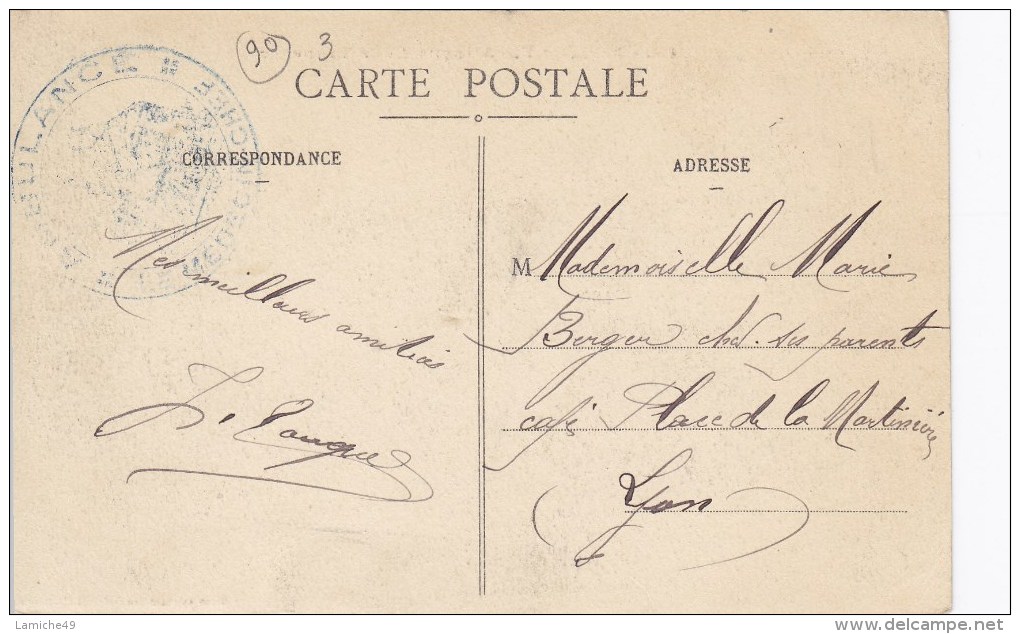 90 3
CARTE POSTALE
CORRESPONDANCE
ADRESSE
AMBULANCE
Mes meilleures amitiés
M Mademoiselle Marie
Berger chez ses parents
café Place de la Martinière
Lyon
Lamiche49
www.delcampe.net